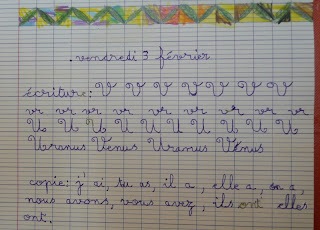 vendredi 3 février
écriture: V V V V V V V
vr vr vr vr vr vr vr vr vr
U U U U U U U U U U
Uranus Vénus Uranus Vénus
copie: j'ai, tu as, il a, elle a, on a,
nous avons, vous avez, ils ont elles
ont.